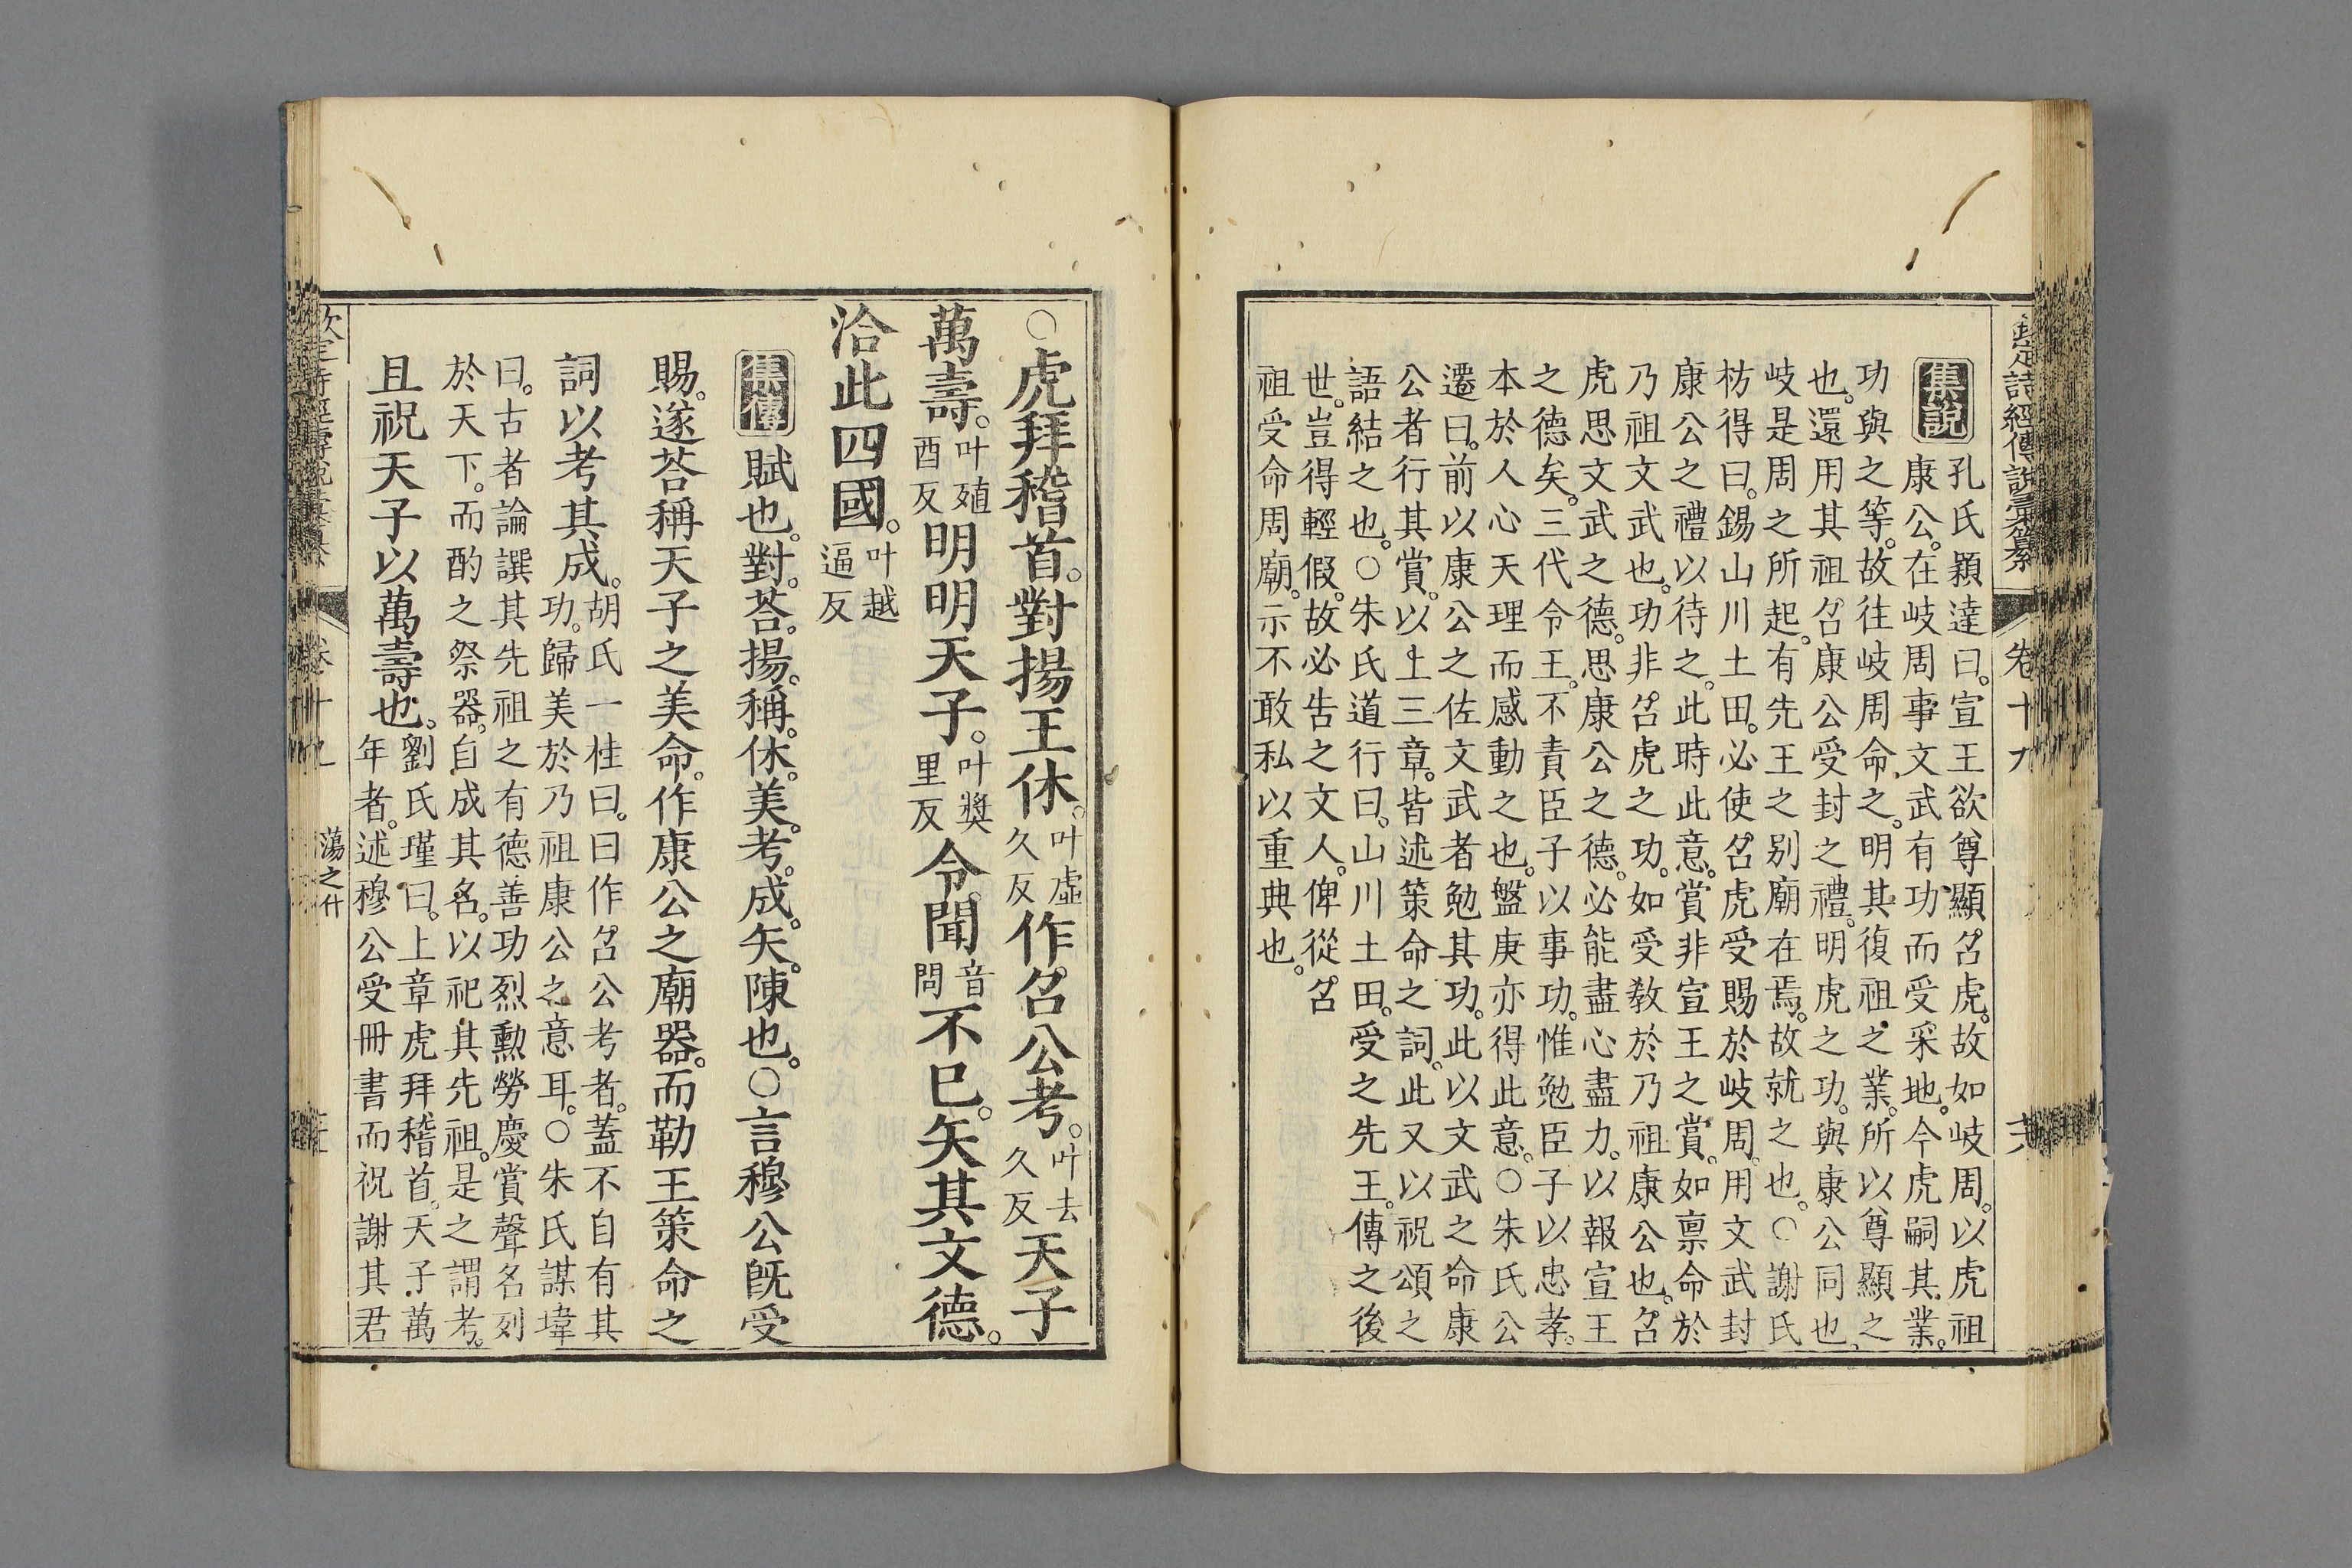 欽定詩經傳說彙纂 卷十九
集說
孔氏穎達曰。宣王欲尊顯召虎。故如岐周。以虎祖
康公。在岐周事文武有功而受采地。今虎嗣其業。
功與之等。故往岐周命之。明其復祖之業。所以尊顯之
也。還用其祖召康公受封之禮。明虎之功。與康公同也。
岐是周之所起。有先王之別廟在焉。故就之也。○謝氏
枋得曰。錫山川土田。必使召虎受賜於岐周。用文武封
康公之禮以待之。此時此意。賞非宣王之賞。如禀命於
乃祖文武也。功非召虎之功。如受敎於乃祖康公也。召
虎思文武之德。思康公之德。必能盡心盡力。以報宣王
之德矣。三代令王。不責臣子以事功。惟勉臣子以忠孝。
本於人心天理而感動之也。盤庚亦得此意。○朱氏公
遷曰。前以康公之佐文武者勉其功。此以文武之命康
公者行其賞。以上三章。皆述策命之詞。此又以祝頌之
語結之也。○朱氏道行曰。山川土田。受之先王。傳之後
世。豈得輕假。故必告之文人。俾從召
祖受命周廟。示不敢私以重典也。
○虎拜稽首。對揚王休。叶虛久反作召公考。叶去久反天子
萬壽。叶殖酉反明明天子。叶獎里反令聞音問不已。矢其文德。
洽此四國。叶越逼反
集傳 賦也。對。荅。揚。稱。休。美。考。成。矢。陳也。○言穆公旣受
賜。遂荅稱天子之美命。作康公之廟器。而勒王策命之
詞以考其成。胡氏一桂曰。曰作召公考者。蓋不自有其
功。歸美於乃祖康公之意耳。○朱氏謀㙔
曰。古者論譔其先祖之有德善功烈勳勞慶賞聲名列
於天下。而酌之祭器。自成其名。以祀其先祖。是之謂考。
且祝天子以萬壽也。劉氏瑾曰。上章虎拜稽首。天子萬
年者。述穆公受冊書而祝謝其君
卷十九 蕩之什